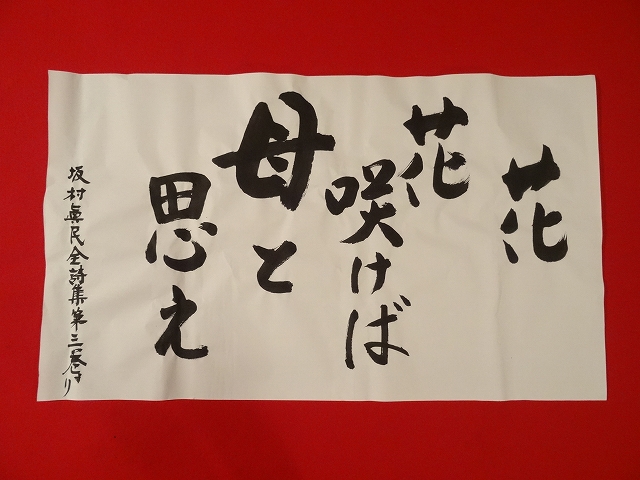 花
花
咲けば
母と
思え
坂村真民全詩集第三巻より